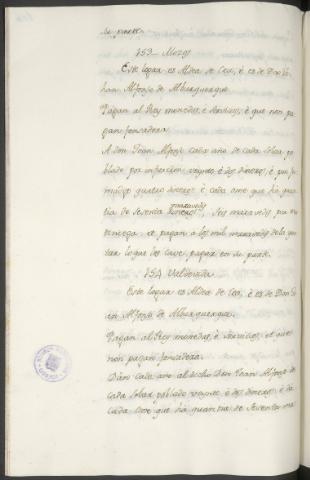 su puerto.
153 Mozos
Este logar es Aldea de Cea, è es de Don Jo-
han Alfonso de Alburquerque.
Pagan al Rey monedas, è servicios, è que non pa-
gan fonsadera.
A don Joan Alfonso cada año de cada solar po-
blado por infurcion veynte, è dos dineros, è por ju-
quatro dineros è cada ome que ha quan-
tia de sesenta maravedis, seis maravedis por mar-
tiniega, et pagan à los mil maravedis de la yan-
tar lo que les cave pagar en su parte.
154 Valdesaha
Este logar es Aldea de Cea, è es de Don Jo-
an Alfonso de Alburquerque.
Pagan al Rey monedas, è servicios, et que
non pagan fonsadera.
Dan cada año al dicho Don Joan Alfonso de
cada solar poblado veynte, è dos dineros, è da
cada ome que ha quantia de sesenta ma-